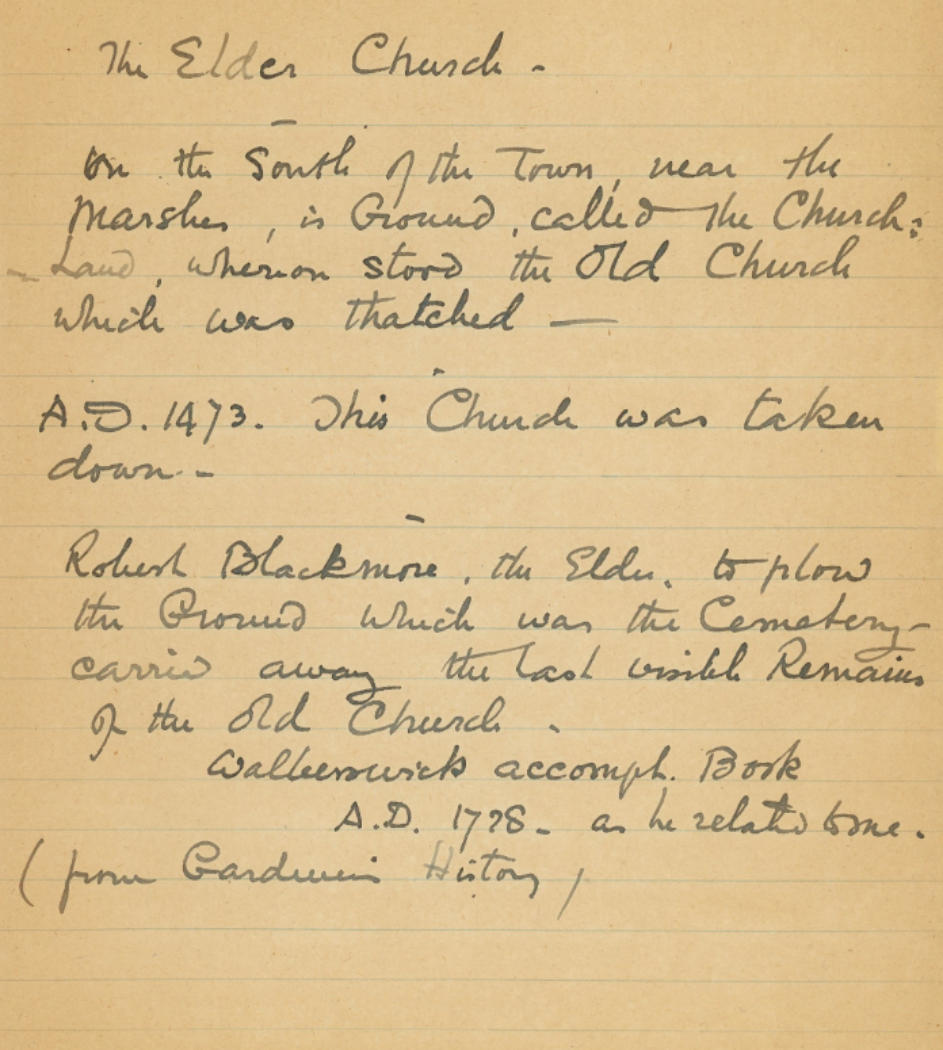 The Elder Church -
On the South of the Town, near the
Marshes, is Ground, called the Church=
- Land, whereon stood the Old Church
which was thatched —
A.D. 1473. This Church was taken
down. -
Robert Blackmore, the Elder, to plow
the Ground which was the Cemetery -
carried away the last visible Remains
of the Old Church.
Walberswick accompt. Book
A.D. 1728 - as he related to me.
(from Gardner's History)